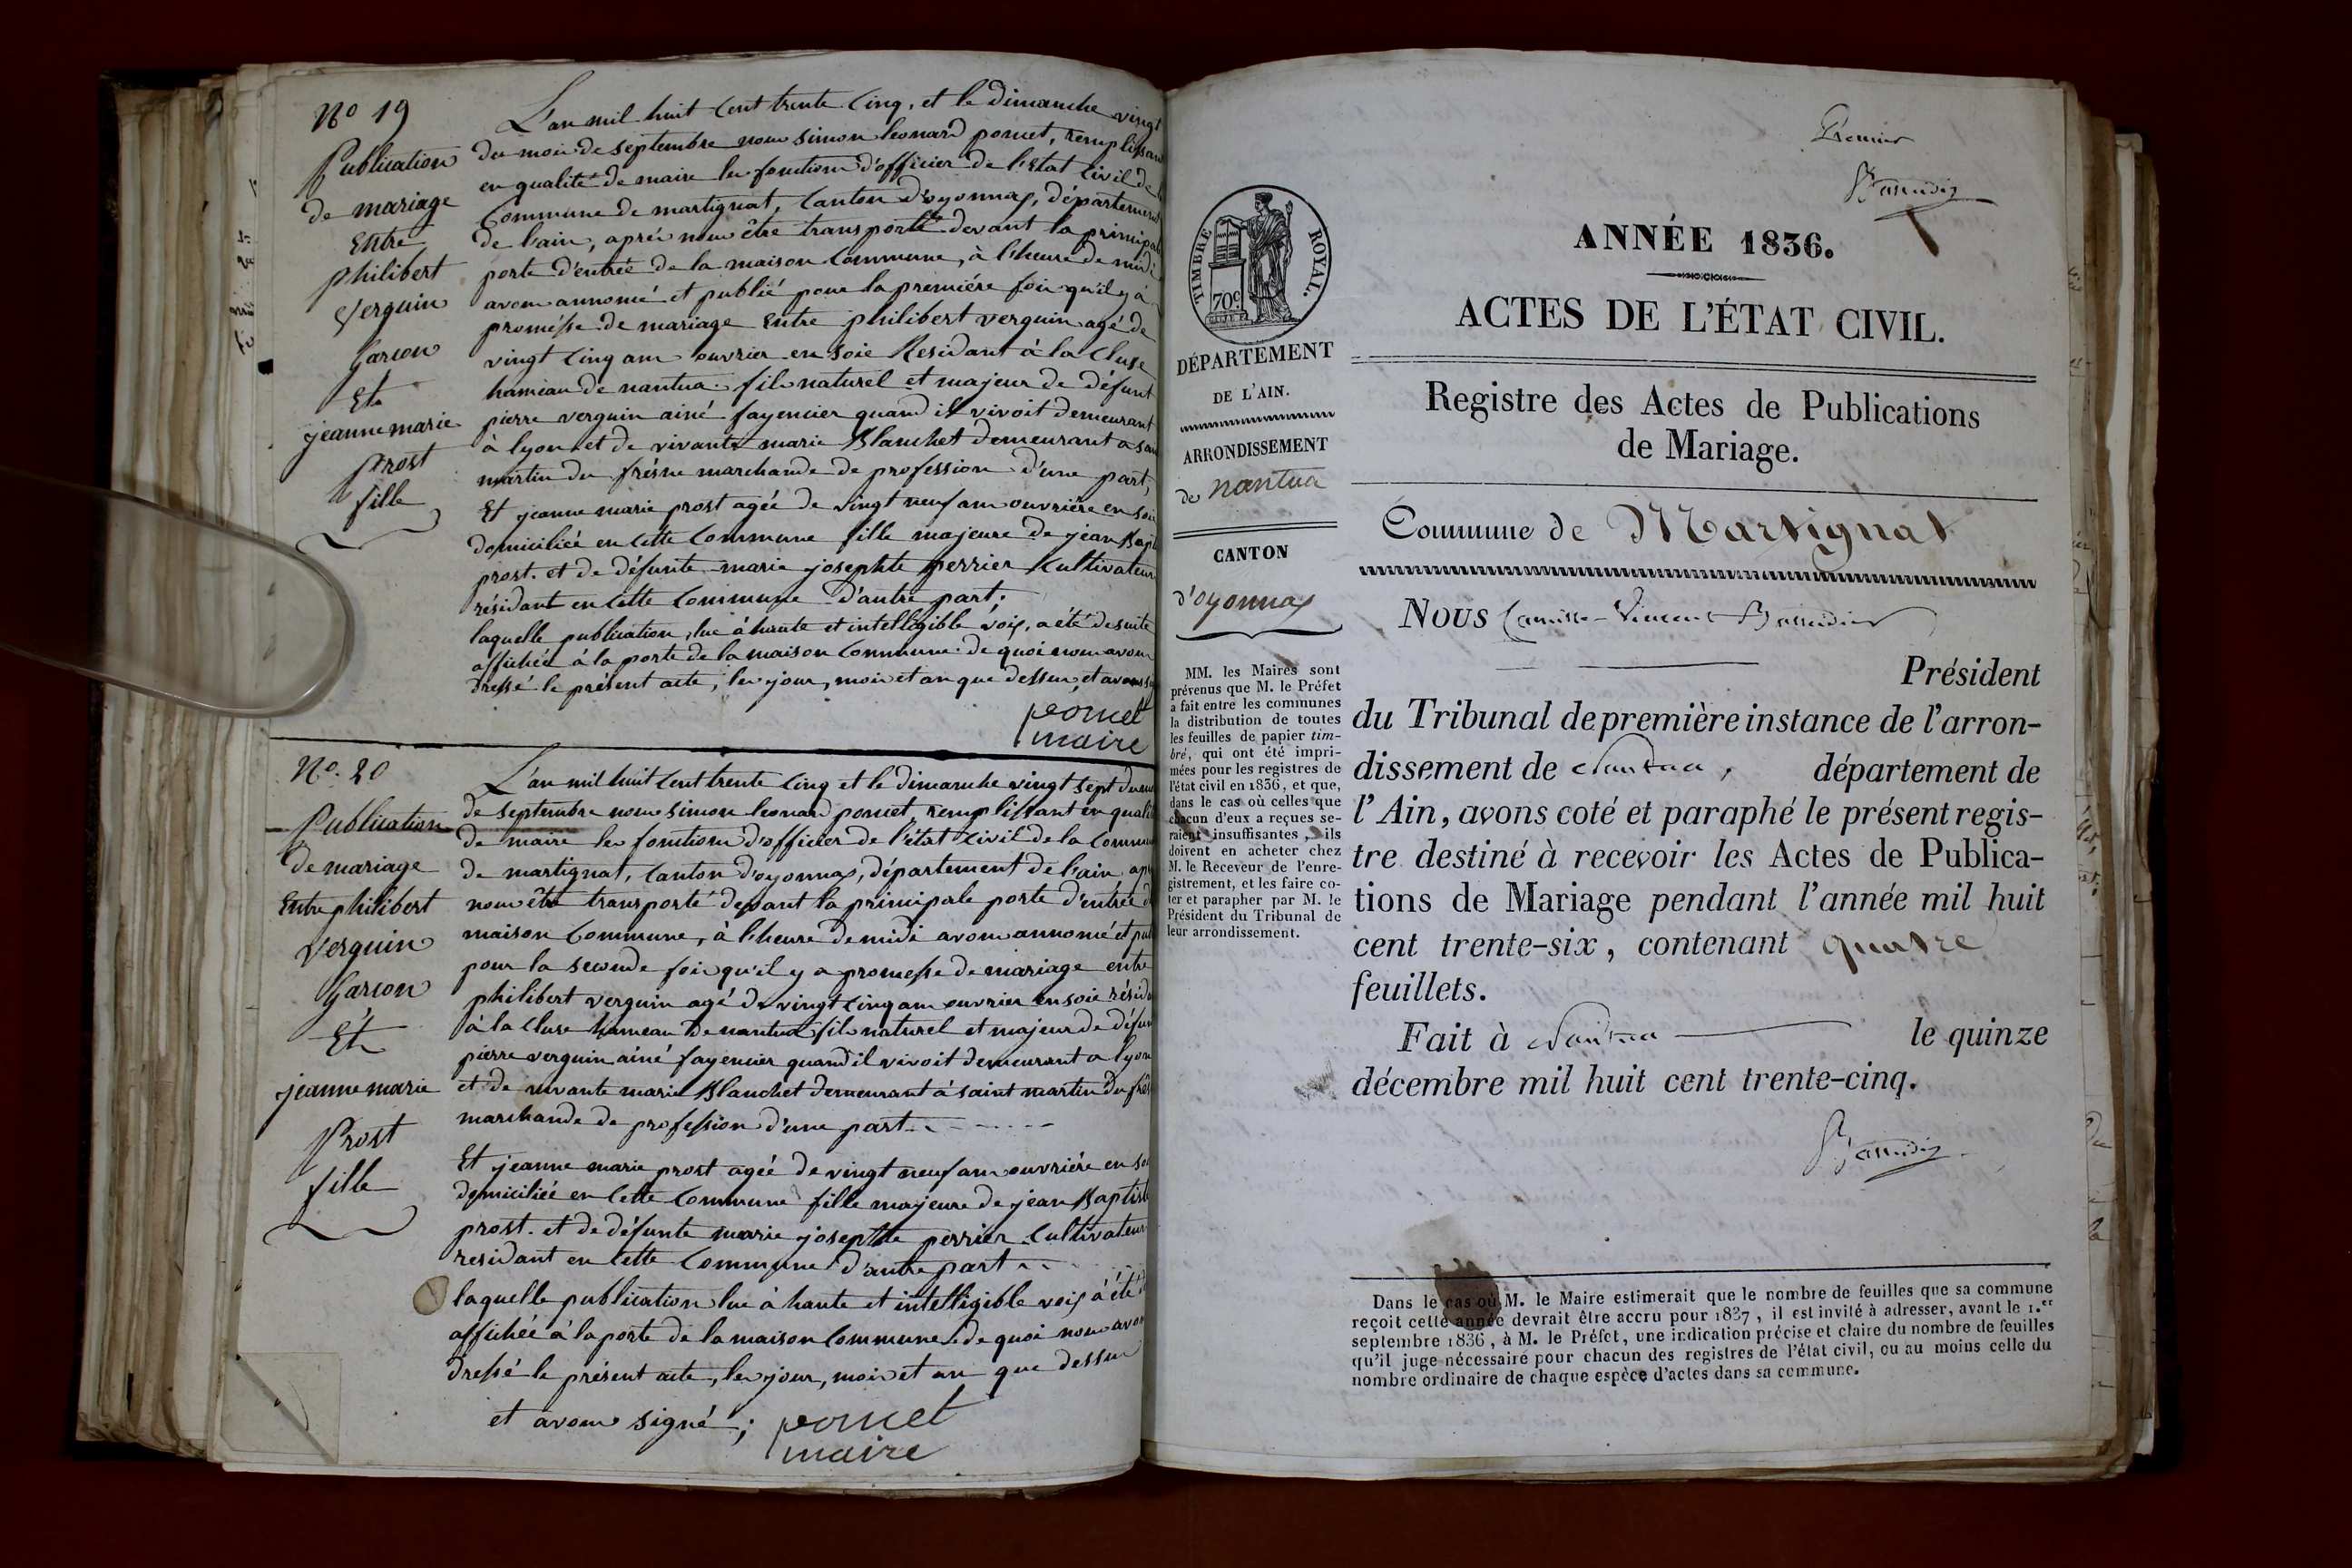 No 19
Publication
de mariage
Entre
philibert
Verguin
Garcon
Et
jeanne marie
Prost
fille
L'an mil huit Cent trente Cinq, et le dimanche vingt
du mois de septembre nous simon leonard poncet, remplissan
en qualité de maire les fonctions d'officier de l'Etat Civil de
Commune de martignat, Canton d'oyonnax, département
de l'ain, après nous être transporté devant la principal
porte d'entrée de la maison Commune, à l'heure de midi
avons annoncé et publié pour la première fois qu'il y à
promésse de mariage Entre philibert verguin agé de
vingt Cinq ans ouvrier en soie Residant à la Cluse
hameau de nantua fils naturel et majeur de défunt
pierre verguin ainé fayencier quand il vivoit demeurant
à lyon et de vivante marie Blanchet demeurant a
martin du frésne marchande de profession d'une part,
Et jeanne marie prost agée de vingt neuf ans ouvrière en soie
domiciliée en Cette Commune fille majeure de jean Bapti
prost. et de défunte marie josephte perrier Cultivateur
résidant en Cette Commune d'autre part;
laquelle publication, lue à haute et intelligible voix, a été de suite
affichée à la porte de la maison Commune. de quoi nous avons
dressé le présent acte, les jour, mois et an que dessus, et avons
poncet
maire
No. 20
Publication
de mariage
Entre philibert
Verguin
Garcon
Et
jeanne marie
Prost
fille
L'an mil huit Cent trente Cinq et le dimanche vingt sept du
de septembre nous simon leonard poncet, remplissant en qualit
de maire les fonctions d'officier de l'état Civil de la Commun
de martignat, Canton d'oyonnax, département de l'ain, ap
nous être transporté devant la principale porte d'entrée d
maison Commune, à l'heure de midi avons annoncé et pub
pour la seconde fois qu'il y a promesse de mariage entre
philibert verguin agé de vingt Cinq ans ouvrier en soie résid
à la Cluse hameau de nantua fils naturel et majeur de défun
pierre verguin ainé fayencier quand il vivoit demeurant a lyon
et de vivante marie Blanchet demeurant à saint martin du frês
marchande de profession d'une part
Et jeanne marie prost agée de vingt neuf ans ouvrière en so
domiciliée en Cette Commune fille majeure de jean Baptist
prost. et de défunte marie josephte perrier Cultivateur
residant en Cette Commune d'autre part
laquelle publication lue à haute et intelligible voix à été d
affichée à la porte de la maison Commune de quoi nous avon
dressé le présent acte, les jour, mois et an que dessus
et avons signé; poncet
maire
Premier
TIMBRE ROYAL.
70c
DÉPARTEMENT
DE L'AIN.
ARRONDISSEMENT
de nantua
CANTON
d'oyonnax
MM. les Maires sont
prévenus que M. le Préfet
a fait entre les communes
la distribution de toutes
les feuilles de papier tim-
bré, qui ont été impri-
mées pour les registres de
l'état civil en 1836, et que,
dans le cas où celles que
chacun d'eux a reçues se-
raient insuffisantes, ils
doivent en acheter chez
M. le Receveur de l'enre-
gistrement, et les faire co-
ter et parapher par M. le
Président du Tribunal de
leur arrondissement.
ANNÉE 1836.
ACTES DE L'ÉTAT CIVIL.
Registre des Actes de Publications
de Mariage.
Commune de Martignat
NOUS Camille-Vincent
Président
du Tribunal de première instance de l'arron-
dissement de Nantua, département de
l'Ain, avons coté et paraphé le présent regis-
tre destiné à recevoir les Actes de Publica-
tions de Mariage pendant l'année mil huit
cent trente-six, contenant quatre
feuillets.
Fait à Nantua le quinze
décembre mil huit cent trente-cinq.
Dans le cas où M. le Maire estimerait que le nombre de feuilles que sa commune
reçoit cette année devrait être accru pour 1837, il est invité à adresser, avant le 1.er
septembre 1836, à M. le Préfet, une indication précise et claire du nombre de feuilles
qu'il juge nécessaire pour chacun des registres de l'état civil, ou au moins celle du
nombre ordinaire de chaque espèce d'actes dans sa commune.